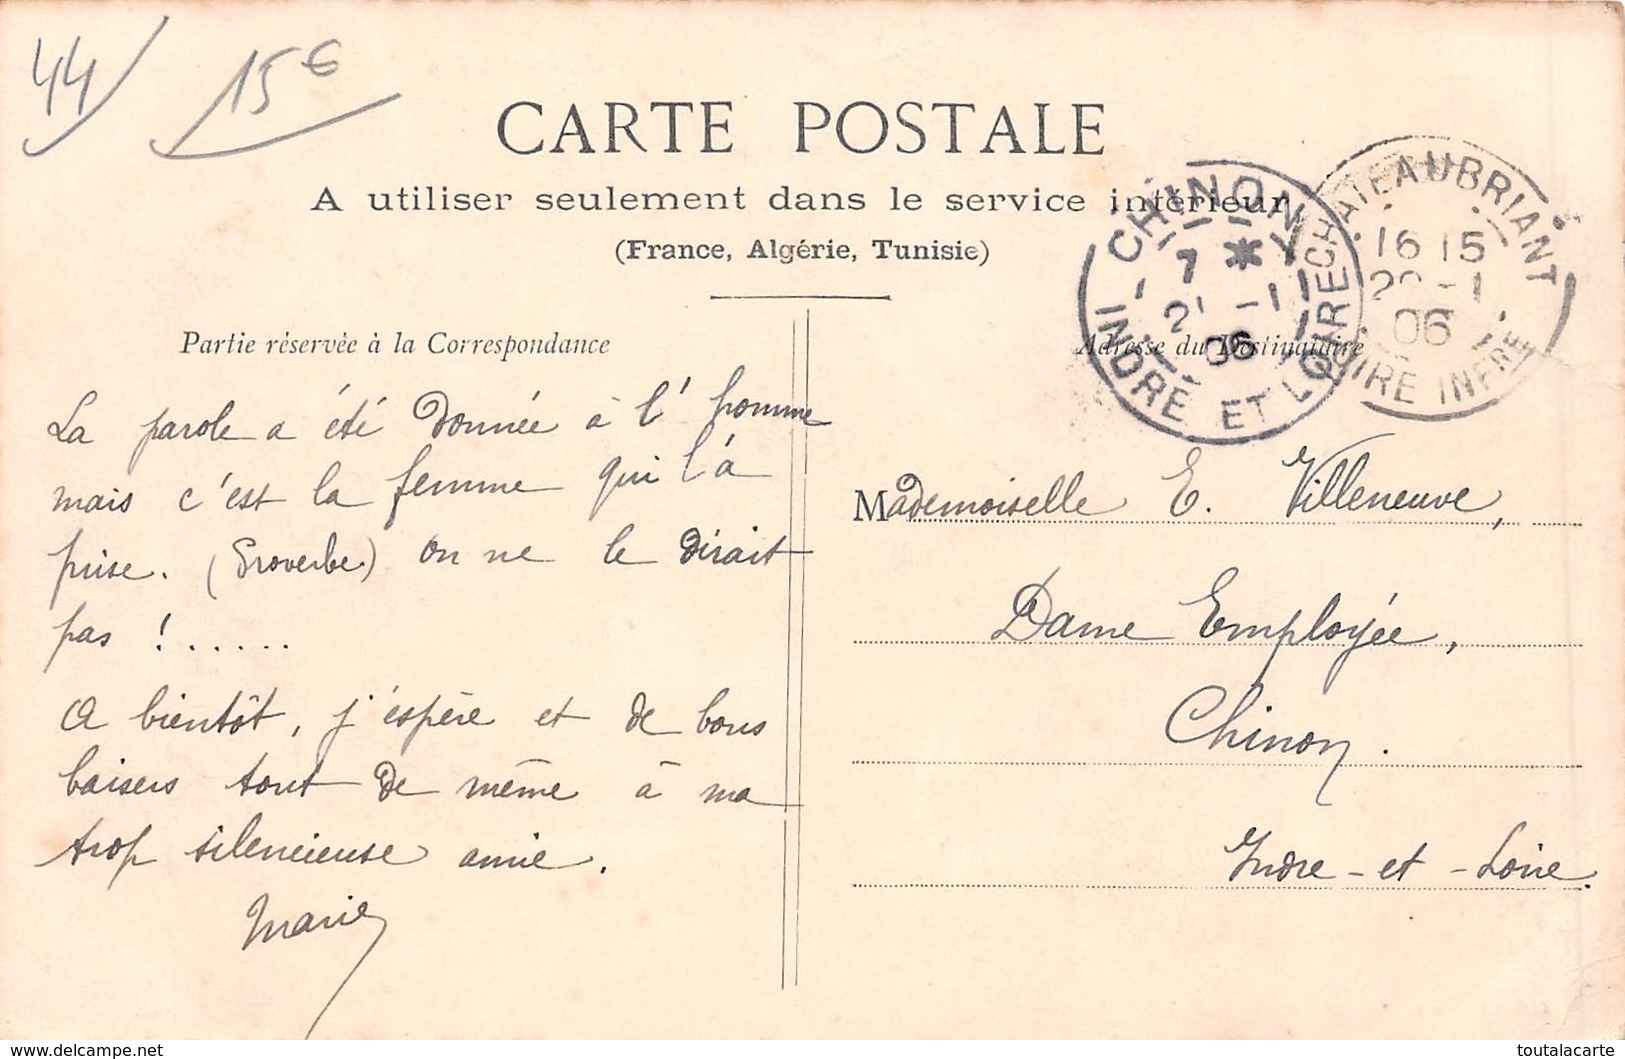 44
15€
CARTE POSTALE
A utiliser seulement dans le service intérieur
(France, Algérie, Tunisie)
CHINON
7 *
-1
06
INDRE ET LOIRE
CHATEAUBRIANT
16 15
-1
06
LOIRE INFRE
Partie réservée à la Correspondance
La parole a été donnée à l'homme
mais c'est la femme qui l'à
prise. (Proverbe) On ne le dirait
pas !.....
A bientôt, j'espère et de bons
baisers tout de même à ma
trop silencieuse amie.
Marie
Adresse du Destinataire
Mademoiselle E. Villeneuve,
Dame Employée,
Chinon.
Indre-et-Loire.
www.delcampe.net
toutalacarte